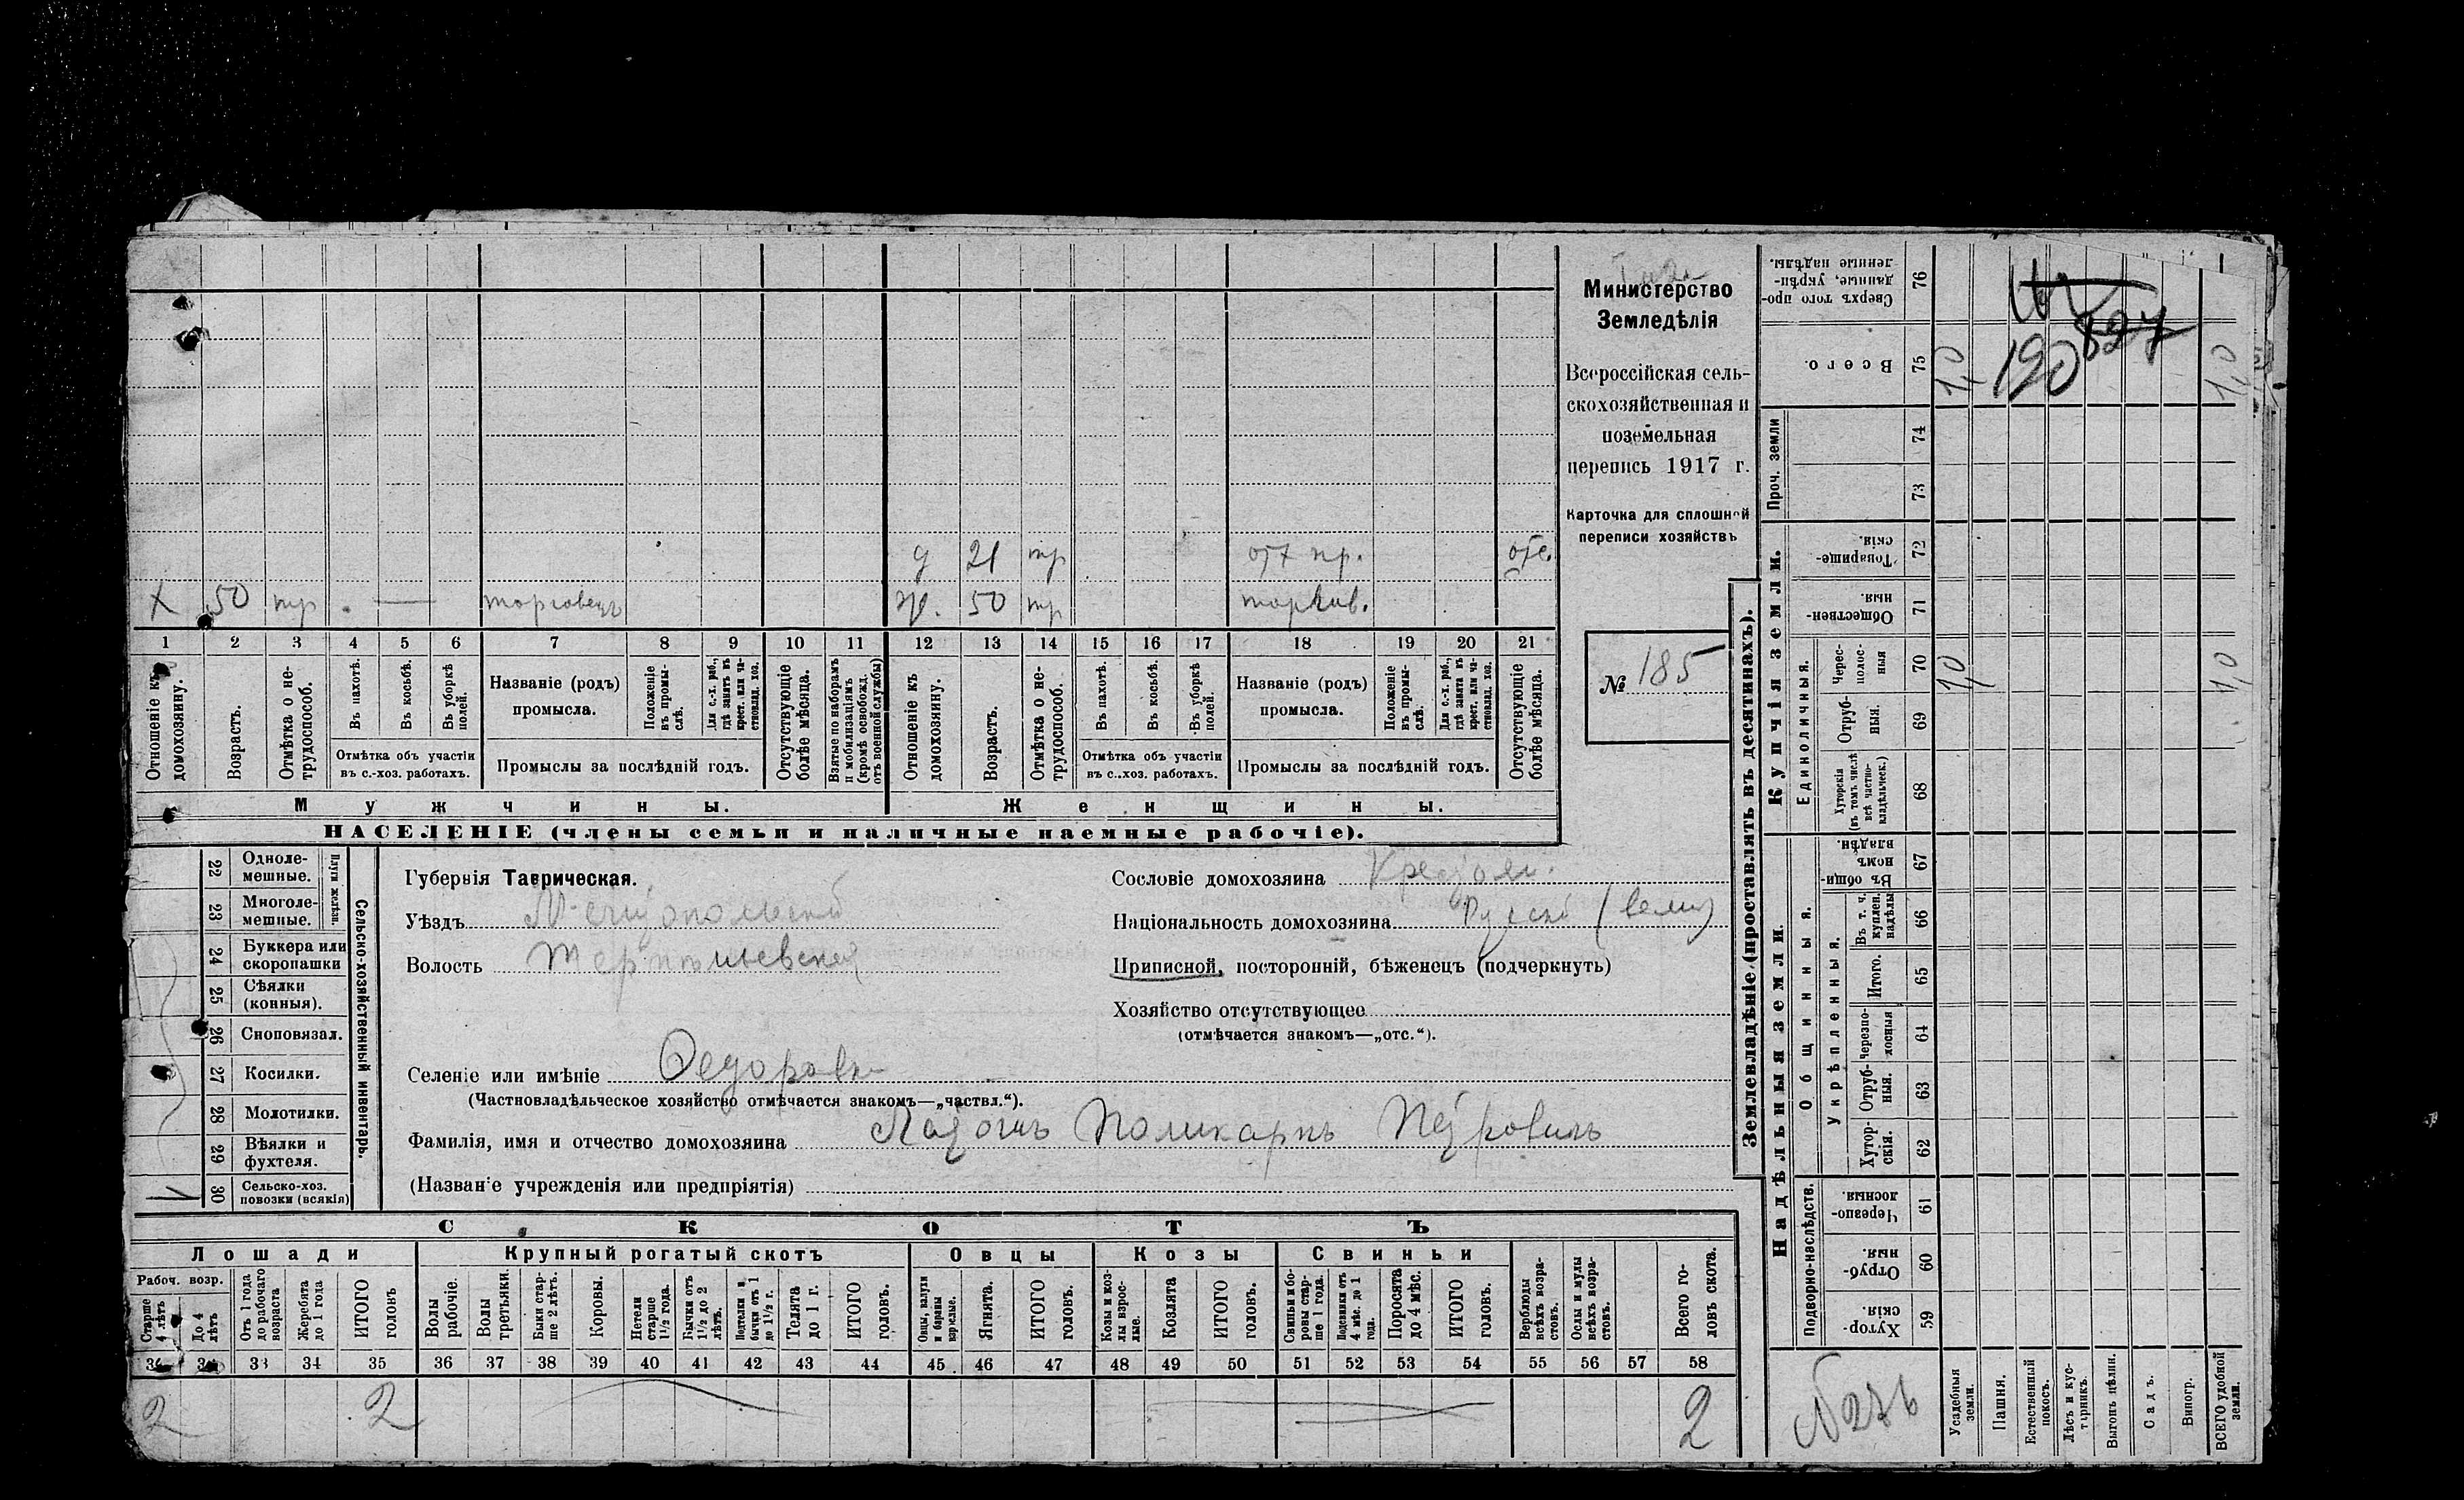 Министерство
Земледѣлія
Всероссійская сель-
скохозяйственная и
поземельная
перепись 1917 г.
Карточка для сплошной
переписи хозяйствъ
№ 185
д 21 тр отх пр. отс.
X 50 тр торговецъ ж. 50 тр торгов.
1 2 3 4 5 6 7 8 9 10 11 12 13 14 15 16 17 18 19 20 21
Отношеніе къ домохозяину.
Возрастъ.
Отмѣтка о не-трудоспособ.
Въ пахотѣ.
Въ косьбѣ.
Въ уборкѣ полей.
Отмѣтка объ участіи
въ с.-хоз. работахъ.
Названіе (родъ)
промысла.
Положеніе въ промы-слѣ.
Для с.-х. раб., гдѣ занятъ въ крест. или ча-стновлад. хоз.
Промыслы за послѣдній годъ.
Отсутствующіе болѣе мѣсяца.
Взятые по наборамъ и мобилизаціямъ (кромѣ освобожд. отъ военной службы)
Отношеніе къ домохозяину.
Возрастъ.
Отмѣтка о не-трудоспособ.
Въ пахотѣ.
Въ косьбѣ.
Въ уборкѣ полей.
Отмѣтка объ участіи
въ с.-хоз. работахъ.
Названіе (родъ)
промысла.
Положеніе въ промы-слѣ.
Для с.-х. раб., гдѣ занята въ крест. или ча-стновлад. хоз.
Промыслы за послѣдній годъ.
Отсутствующіе болѣе мѣсяца.
Мужчины.
Женщины.
НАСЕЛЕНІЕ (члены семьи и наличные наемные рабочіе).
Сельско-хозяйственный инвентарь.
Плуги желѣзн.
22 Одноле-мешные.
23 Многоле-мешные.
24 Буккера или скоропашки
25 Сѣялки (конныя).
26 Сноповязал.
27 Косилки.
28 Молотилки.
29 Вѣялки и фухтеля.
30 Сельско-хоз. повозки (всякія)
1
Губернія Таврическая.
Уѣздъ Мелитопольскій
Волость
Сословіе домохозяина Крестьян.
Національность домохозяина Русскій (велик)
Приписной, посторонній, бѣженецъ (подчеркнуть)
Хозяйство отсутствующее
(отмѣчается знакомъ—„отс.“).
Селеніе или имѣніе Ѳедоровка
(Частновладѣльческое хозяйство отмѣчается знакомъ—„частвл.“).
Фамилія, имя и отчество домохозяина Поликарпъ Петровичъ
(Названіе учрежденія или предпріятія)
СКОТЪ
Лошади
Крупный рогатый скотъ
Овцы
Козы
Свиньи
Рабоч. возр.
Старше 4 лѣтъ
До 4 лѣтъ
Отъ 1 года до рабочаго возраста
Жеребята до 1 года
ИТОГО головъ
Волы рабочіе.
Волы третьяки.
Быки стар-ше 2 лѣтъ.
Коровы.
Нетели старше 1½ года.
Бычки отъ 1½ до 2 лѣтъ.
Подтелки и бычки отъ 1 до 1½ г.
Телята до 1 г.
ИТОГО головъ.
Овцы, валухи и бараны взрослые.
Ягнята.
ИТОГО головъ.
Козы и коз-лы взрос-лые.
Козлята
ИТОГО головъ.
Свиньи и бо-ровы стар-ше 1 года.
Подсвинки отъ 4 мѣс. до 1 года.
Поросята до 4 мѣс.
ИТОГО головъ.
Верблюды всѣхъ возра-стовъ.
Ослы и мулы всѣхъ возра-стовъ.
Всего го-ловъ скота.
33 34 35 36 37 38 39 40 41 42 43 44 45 46 47 48 49 50 51 52 53 54 55 56 57 58
2 2 2
Землевладѣніе (проставлять въ десятинахъ).
Надѣльныя земли.
Купчія земли.
Проч. земли
Подворно-наслѣдств.
Общинныя.
Укрѣпленныя.
Единоличныя.
Хутор-скія. 59
Отруб-ныя. 60
Черезпо-лосныя. 61
Хутор-скія. 62
Отруб-ныя. 63
Черезпо-лосныя 64
Итого. 65
Въ т. ч. куплен. надѣлы 66
Въ общин-номъ владѣн. 67
Хуторскія (въ томъ числѣ всѣ частно-владѣльческ.) 68
Отруб-ныя. 69
Черес-полос-ныя 70
Обществен-ныя. 71
Товарище-скія. 72
73
74
Всего. 75
Сверхъ того про-данные, укрѣп-ленные надѣлы. 76
Усадебныя земли.
Пашня.
Естественный покосъ.
Лѣсъ и кус-тарникъ.
Выгонъ цѣлин.
Садъ.
Виногр.
ВСЕГО удобной земли.
1,0 1,0
1,0 1,0
190
827